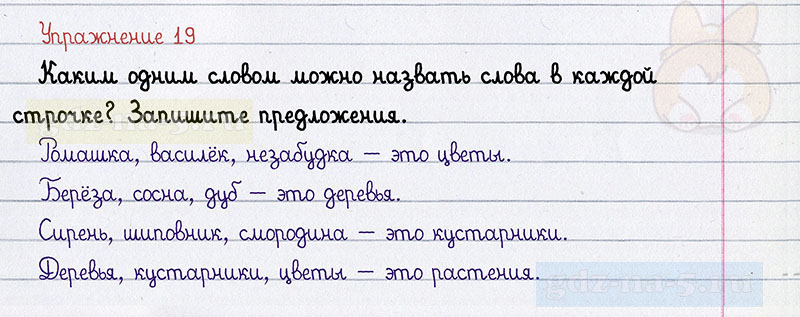 Упражнение 19
Каким одним словом можно назвать слова в каждой
строчке? Запишите предложения.
Ромашка, василёк, незабудка – это цветы.
Берёза, сосна, дуб – это деревья.
Сирень, шиповник, смородина – это кустарники.
Деревья, кустарники, цветы – это растения.
gdz-na-5.ru
gdz-na-5.ru